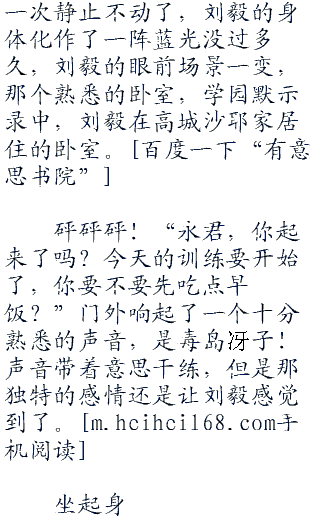 一次静止不动了，刘毅的身
体化作了一阵蓝光没过多
久，刘毅的眼前场景一变，
那个熟悉的卧室，学园默示
录中，刘毅在高城沙耶家居
住的卧室。[百度一下“有意
思书院”]
砰砰砰！“永君，你起
来了吗？今天的训练要开始
了，你要不要先吃点早
饭？”门外响起了一个十分
熟悉的声音，是毒岛冴子！
声音带着意思干练，但是那
独特的感情还是让刘毅感觉
到了。[m.hcihcil68.com手
机阅读]
坐起身